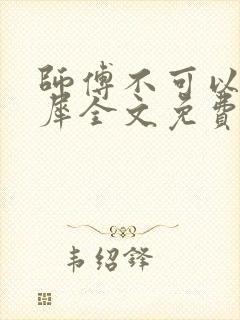 師傅不可以
犀全文免費
韦绍铎